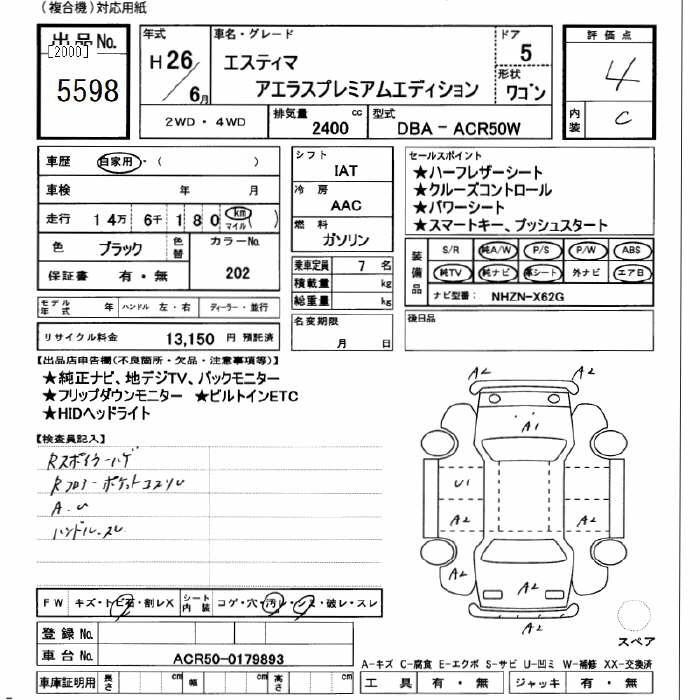 (複合機)対応用紙
出品No.
[2000]
5598
年式
H26/6月
車名・グレード
エスティマ
アエラスプレミアムエディション
ドア
5
形状
ワゴン
評価点
4
内装
C
2WD・4WD
排気量
2400 cc
型式
DBA-ACR50W
車歴 自家用・( )
車検 年 月
走行 14万 6千 180 (km マイル)
色 ブラック 色替
カラーNo.
202
保証書 有・無
シフト
IAT
冷房
AAC
燃料
ガソリン
乗車定員 7 名
積載量 kg
総重量 kg
セールスポイント
★ハーフレザーシート
★クルーズコントロール
★パワーシート
★スマートキー、プッシュスタート
装備品
S/R 純A/W P/S P/W ABS
純TV 純ナビ 革シート 外ナビ エアB
ナビ型番: NHZN-X62G
モデル年式 年 ハンドル 左・右 ディーラー・並行
リサイクル料金 13,150 円 預託済
名変期限
月 日
後日品
【出品店申告欄(不良箇所・欠品・注意事項等)】
★純正ナビ、地デジTV、バックモニター
★フリップダウンモニター ★ビルトインETC
★HIDヘッドライト
【検査員記入】
Rスポイラーハゲ
Rフロアーポケットコスリレ
A.U
ハンドルスレ
A2 A2
A1
U1
A2 A2
A2 A2
A2
スペア
FW キズ・トビ石・割レX シート内装 コゲ・穴・汚レ・シミ・破レ・スレ
登録No.
車台No. ACR50-0179893
車庫証明用 長さ cm 幅 cm 高さ cm
A-キズ C-腐食 E-エクボ S-サビ U-凹ミ W-補修 XX-交換済
工具 有・無 ジャッキ 有・無